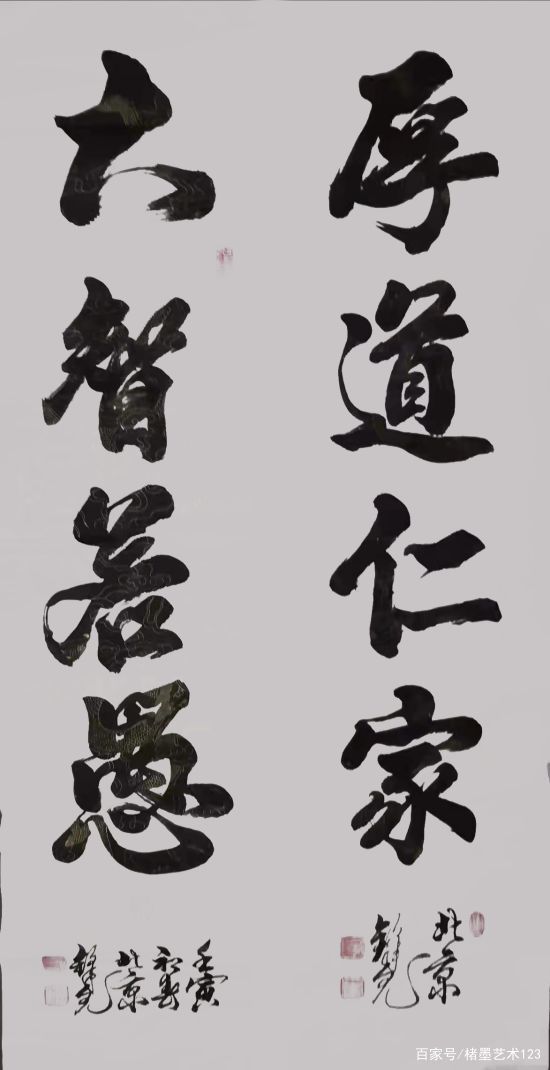 厚道仁家
北京
大智若愚
壬寅
初春
北京
百家号/楮墨艺术123